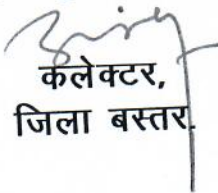 कलेक्टर,
जिला बस्तर